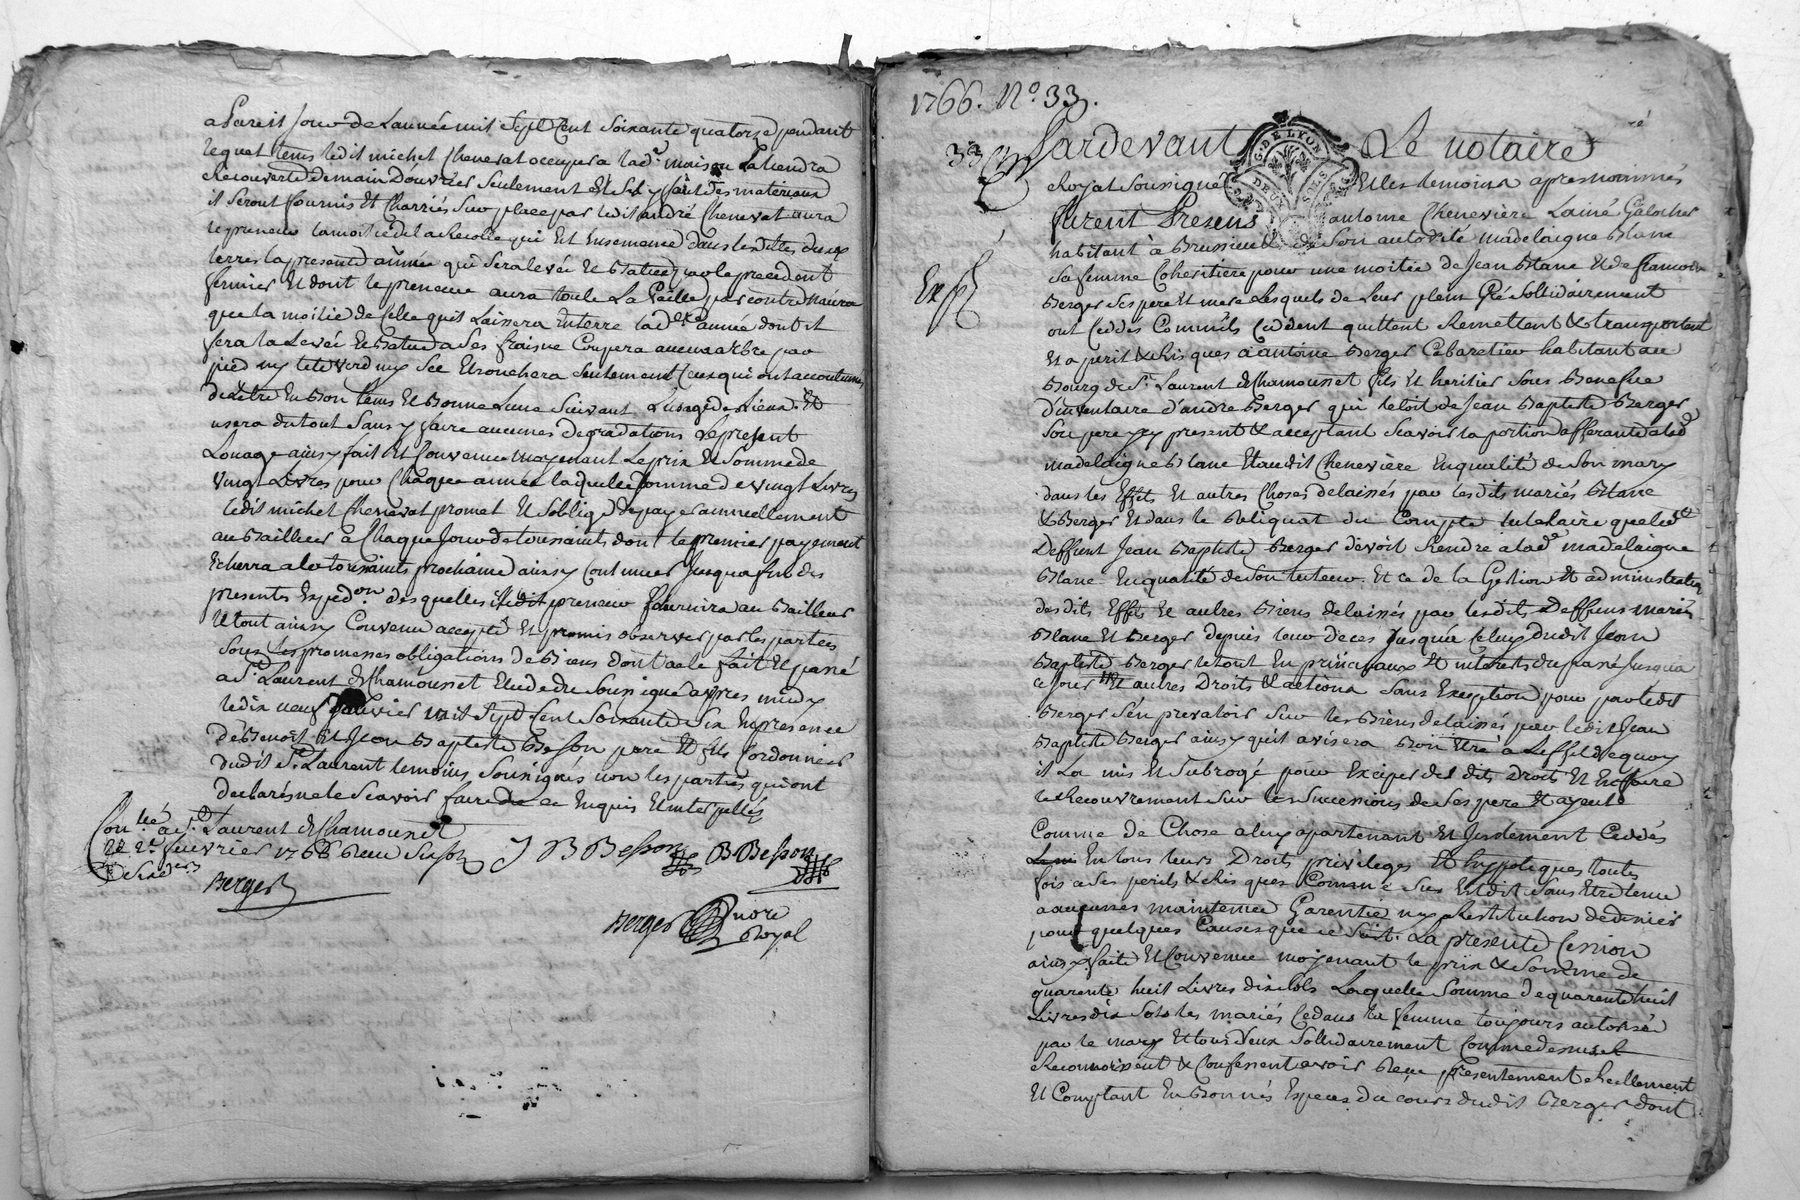 a pareil jour de l'année mil sept cent soixante quatorse pendant
lequel tems ledit michel Chenevat occupera lad.e maison la tiendra
Recouverte de main d'ouvrier seulement et s'il y fait des materiaux
il seront fournis et Charriés sur place par ledit andré Chenevat aura
le preneur la moitié de la Recolte qui Est Ensemencé dans lesdittes deux
terres la presente année qui sera levée et Batue par le precedent
fermier Et dont le preneur aura toute La Paille par contre n'aura
que la moitié de Celle quil Laissera En terre lad.e année dont il
fera la Levée et Batue a ses frais ne Coupera aucun arbre par
pied ny tete verd ny sec Ebronchera seulement Ceux qui ont accoutumé
de L'être En Bon tems et Bonne Lune suivant L'usage des Lieux Et
usera du tout sans y faire aucunes degradations le present
Louage ainsy fait Et Convenu moyenant Le prix et somme de
vingt Livres pour Chaque année laquelle somme de vingt Livres
ledit michel Chenevat promet et s'oblige de payer annuellement
au Bailleur à Chaque jour de toussaints dont le premier payement
Echerra a la toussaints prochaine ainsy Continuer jusqua fin des
presentes Exped.on desquelles ledit preneur fournira au Bailleur
Et tout ainsy Convenu accepté Et promis observer par les parties
sous les promesses obligations de Biens dont acte fait et passé
a S.t Laurent de Chamousset Etude du soussigné apres midy
le dix neuf janvier mil sept Cent soixante six En presence
de Benoit Et Jean Baptiste Besson pere et fils Cordonnier
dudit S.t Laurent temoins soussignés non les parties qui ont
declaré ne le scavoir faire de ce Enquis Et interpellés
Con.llé a S.t Laurent de Chamousset
Le 2.e fevrier 1766 Recu
Berger
J B Besson B Besson
Berger nore
Royal
1766. N.o 33.
33
Pardevant Le notaire
G. DE LYON
DEUX SOLS
Royal soussigné Et les temoins apres nommés
furent Presens antoine Chenevière Lainé Galocher
habitant à Brussieu & de son autorité madelaigne Blanc
sa femme Coheritiere pour une moitié de Jean Blanc Et de françoise
Berger ses pere Et mere Lesquels de Leur plein Gré sollidairement
ont Ceddés Comme ils Ceddent quittent Remettent & transportent
Et a peril & Risques a antoine Berger Cabaretier habitant au
Bourg de S.t Laurent de Chamousset fils Et heritier sous Benefice
d'inventaire d'andre Berger qui l'etoit de Jean Baptiste Berger
son pere icy present & acceptant scavoir la portion afferante a lad.e
madelaigne Blanc Et audit Chenevière En qualité de son mary
dans les Effets Et autres Choses delaissés par lesdits mariés Blanc
& Berger Et dans le Reliquat du Compte tutelaire que led.t
deffunt Jean Baptiste Berger devoit Rendre a lad.e madelaigne
Blanc En qualité de son tuteur Et ce de la Gestion & administration
desdits Effets Et autres Biens delaissés par lesdits deffuns mariés
Blanc Et Berger depuis leur deces jusqu'a Celuy dudit Jean
Baptiste Berger le tout En principaux Et interets du passé jusqua
ce jour Et autres Droits & actions sans Exception pour par ledit
Berger s'en prevaloir sur les Biens delaissés par ledit Jean
Baptiste Berger ainsy quil avisera Bon être a L'effet de quoy
il La mis Et subrogé pour Exciper desdits Droits Et En faire
le Recouvrement sur les successions de ses pere & ayeul
Comme de Chose a luy apartenant Et justement Ceddés
En tous leurs Droits privileges Et hyppoteques toutes
fois a ses perils & Risques Comme sus Est dit sans Etre tenu
a aucunes maintenue Garentie ny Restitution de deniers
pour quelques Causes que ce soit. La presente Cession
ainsy faite Et Convenue moyenant le prix & somme de
quarente huit Livres dix sols Laquelle somme de quarente huit
Livres dix sols les mariés Cedans la femme toujours autorisée
par le mary Et tous deux sollidairement Comme dessus
Reconnoissent & Confessent avoir Reçue presentement & Reellement
Et Comptant En Bonnés Especes du cours dudit Berger dont